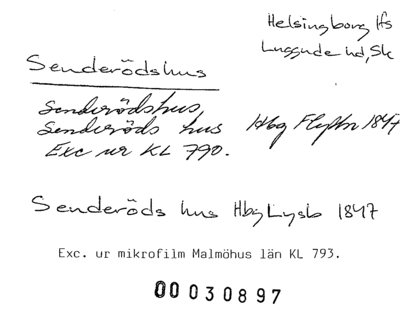 Helsingborg lfs
Luggude hd, Sk
Senderödshus
Senderödshus,
Senderöds hus Hbg Flyttn 1847
Exc ur KL 790.
Senderöds hus Hbg Lysb 1847
Exc. ur mikrofilm Malmöhus län KL 793.
00030897